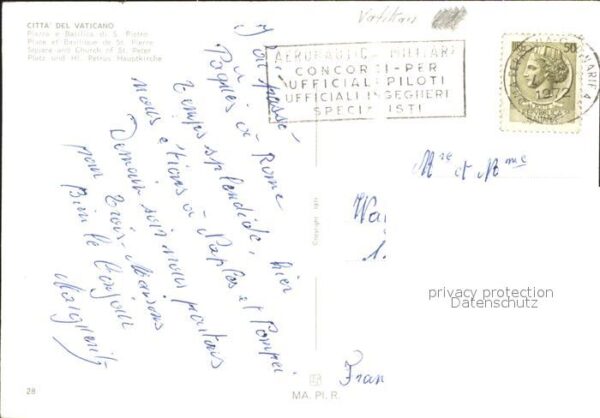 CITTA' DEL VATICANO
Piazza e Basilica di S. Pietro
Place et Basilique de St. Pierre
Square and Church of St. Peter
Platz und Hl. Petrus Hauptkirche
Vatican
AERONAUTICA MILITARE
CONCORSI-PER
UFFICIALI PILOTI
UFFICIALI INGEGNERI
SPECIALISTI
50
1972
J'ai passé
Pâques à Rome
temps splendide, hier
nous étions à Naples et Pompei
Demain soir nous partons
pour trois Maisons
Bien le Bonjour
Marguerite
Mre et Mme
Wai
1.
Fran
privacy protection
Datenschutz
28
MA. PI. R.